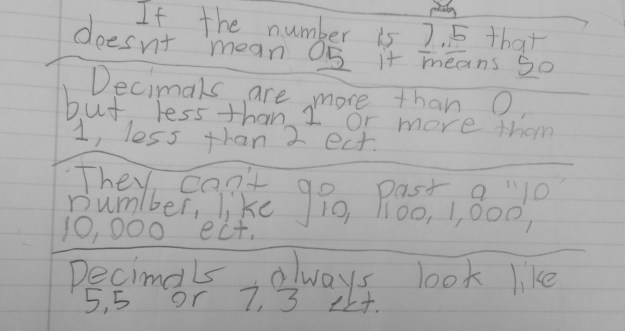 If the number is 7.5 that
doesnt mean 05 it means 50
Decimals are more than 0,
but less than 1 or more than
1, less than 2 ect.
They can't go past a "10"
number, like 10, 100, 1,000,
10,000 ect.
Decimals always look like
5,5 or 7,3 ect.